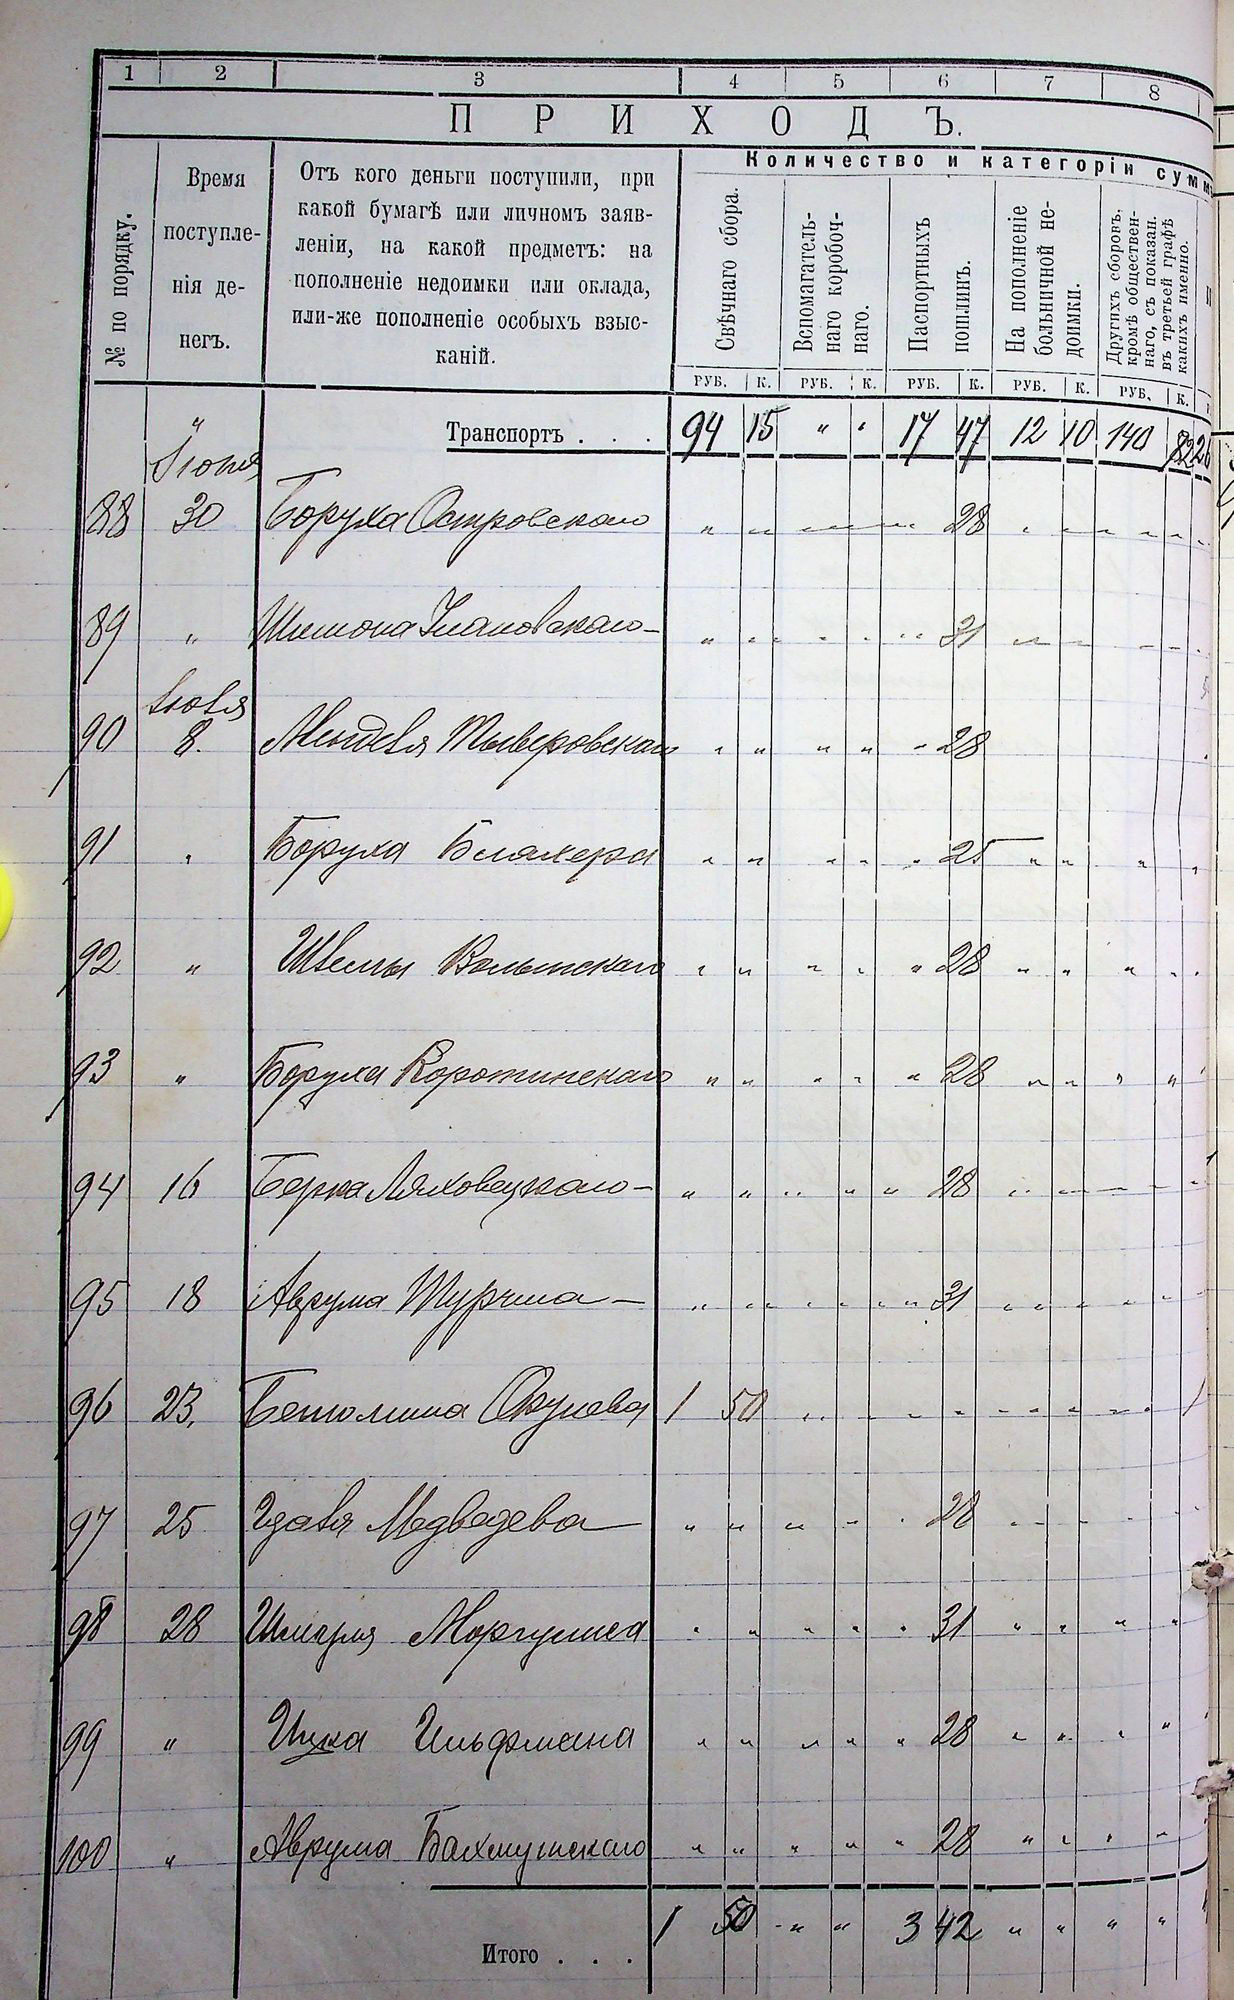 1 2 3 4 5 6 7 8
ПРИХОДЪ.
Количество и категорiи сумм
№ по порядку.
Время
поступле-
нiя де-
негъ.
Отъ кого деньги поступили, при
какой бумагѣ или личномъ заяв-
ленiи, на какой предметъ: на
пополненiе недоимки или оклада,
или-же пополненiе особыхъ взыс-
канiй.
Свѣчнаго сбора.
Вспомагатель-
наго коробоч-
наго.
Паспортныхъ
пошлинъ.
На пополненiе
больничной не-
доимки.
Другихъ сборовъ,
кромѣ обществен-
наго, съ показан.
въ третьей графѣ
какихъ именно.
РУБ. К. РУБ. К. РУБ. К. РУБ. К. РУБ. К.
" Транспортъ . . . 94 15 " " 17 47 12 10 140 82
Iюня
88 30 Боруха Островскаго " " " 28 " " " "
89 " Шимона Улановскаго " " " " " 31 " " " "
Iюля
90 8. Менделя Тыверовскаго " " " " " 28
91 " Боруха Бляхера " " " " " 25 " " " "
92 " Шлемы Волынскаго " " " " " 28 " " " "
93 " Боруха Коротинскаго " " " " " 28 " " " "
94 16 Берка Ляховецкаго " " " " " 28 " " "
95 18 Аврума Турчина " " " " " 31 " " " "
96 23. Окунева 1 50 " " " " " " " "
97 25 Медведева " " " " " 28 " " " "
98 28 Шмаря Моргулиса " " " " " 31 " " " "
99 " Ицка Гильфмана " " " " " 28 " " " "
100 " Аврума Бахмутскаго " " " " " 28 " " " "
Итого . . . 1 50 " " 3 42 " " " "